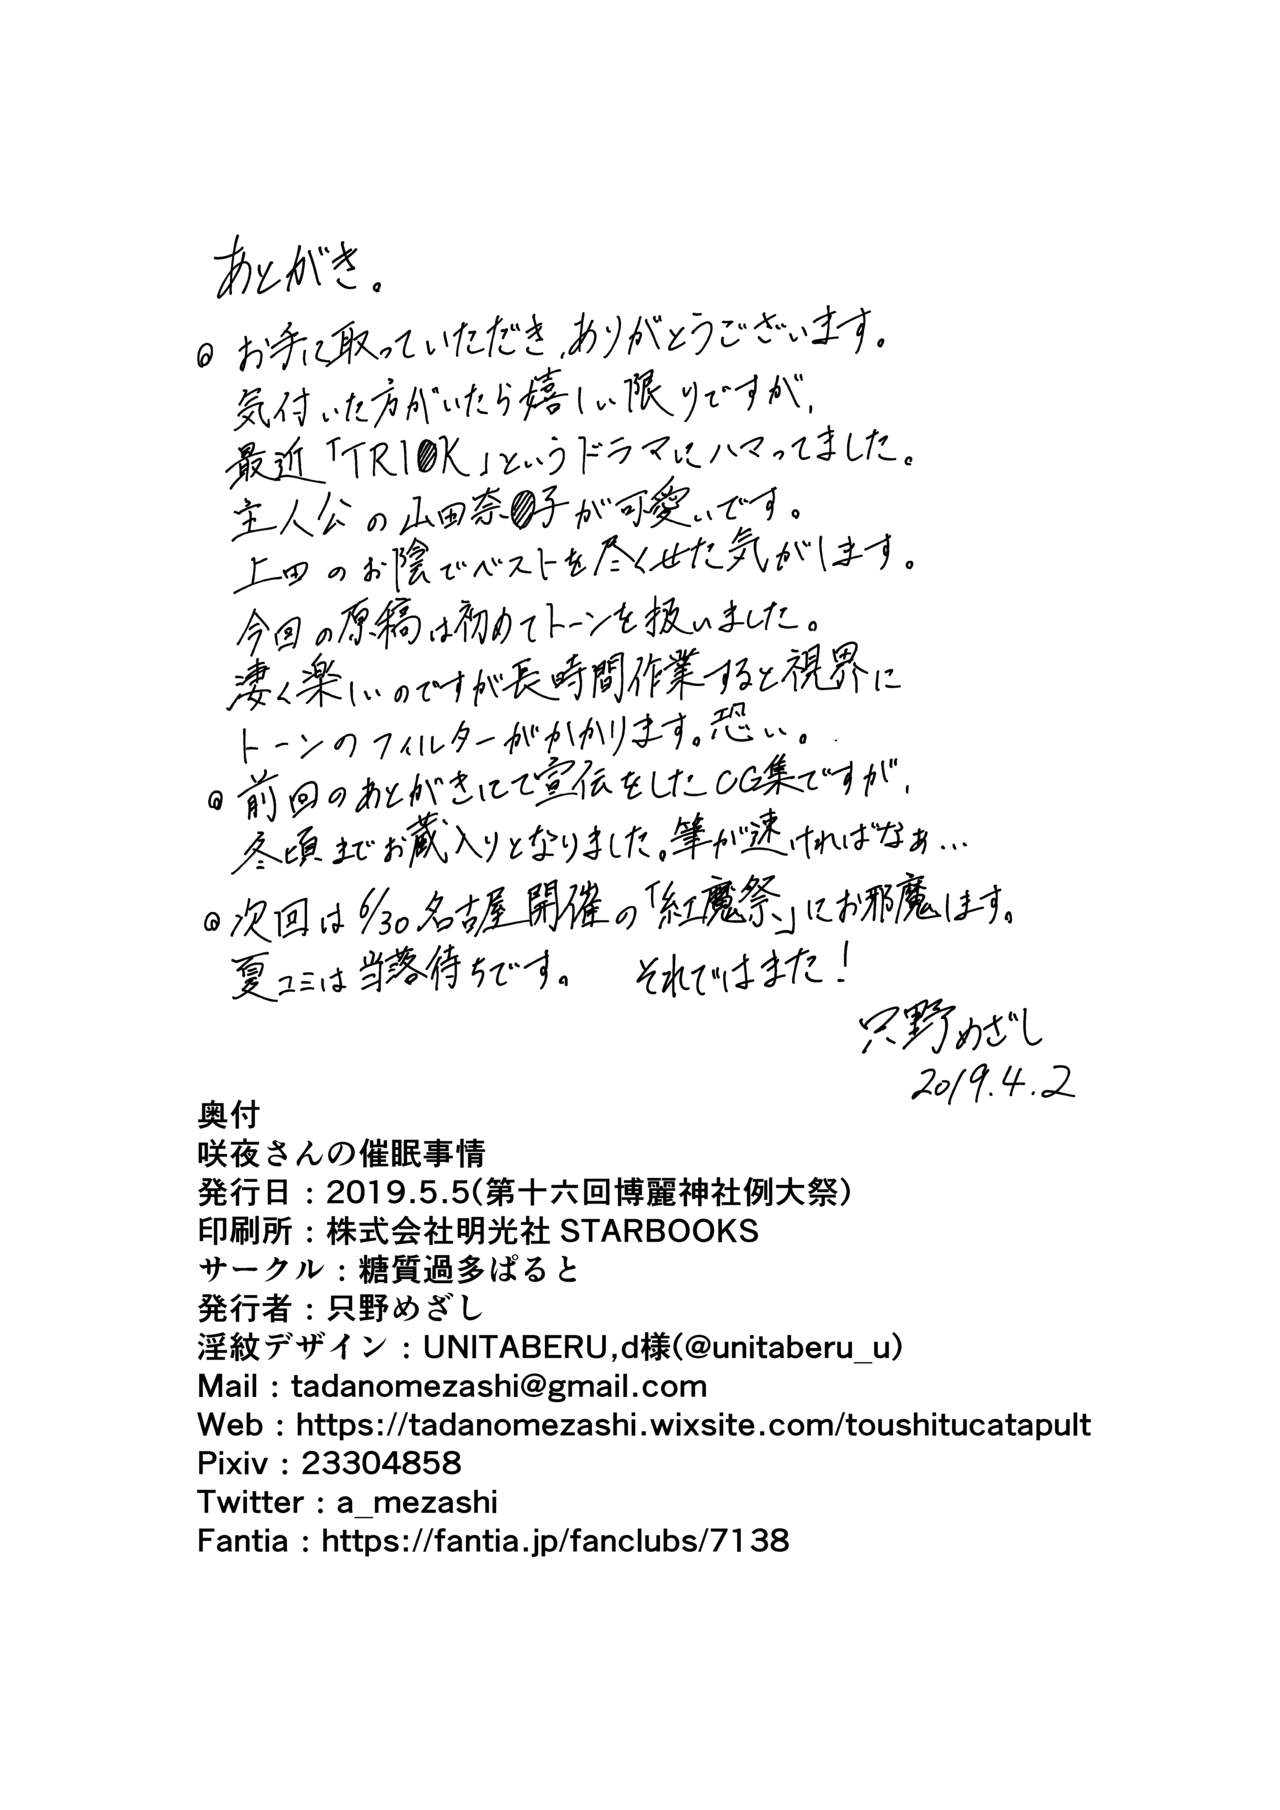 あとがき。
◎ お手に取っていただき、ありがとうございます。
気付いた方がいたら嬉しい限りですが、
最近「TRI●K」というドラマにハマってました。
主人公の山田奈●子が可愛いです。
上田のお陰でベストを尽くせた気がします。
今回の原稿は初めてトーンを扱いました。
凄く楽しいのですが長時間作業すると視界に
トーンのフィルターがかかります。恐い。
◎ 前回のあとがきにて宣伝をしたCG集ですが、
冬頃までお蔵入りとなりました。筆が速ければなぁ…
◎ 次回は6/30名古屋開催の「紅魔祭」にお邪魔します。
夏コミは当落待ちです。 それではまた!
只野めざし
2019.4.2
奥付
咲夜さんの催眠事情
発行日：2019.5.5(第十六回博麗神社例大祭)
印刷所：株式会社明光社 STARBOOKS
サークル：糖質過多ぱると
発行者：只野めざし
淫紋デザイン：UNITABERU,d様(@unitaberu_u)
Mail：tadanomezashi@gmail.com
Web：https://tadanomezashi.wixsite.com/toushitucatapult
Pixiv：23304858
Twitter：a_mezashi
Fantia：https://fantia.jp/fanclubs/7138